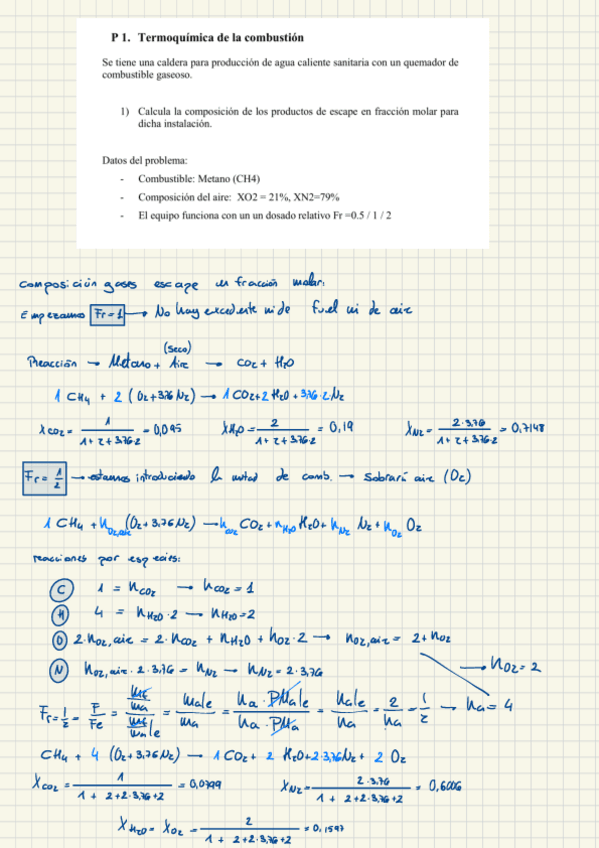 P 1. Termoquímica de la combustión
Se tiene una caldera para producción de agua caliente sanitaria con un quemador de
combustible gaseoso.
1) Calcula la composición de los productos de escape en fracción molar para
dicha instalación.
Datos del problema:
- Combustible: Metano (CH4)
- Composición del aire: XO2 = 21%, XN2=79%
- El equipo funciona con un un dosado relativo Fr =0.5 / 1 / 2
Composición gases escape en fracción molar:
Empezamos Fr = 1 → No hay excedente ni de fuel ni de aire
(Seco)
Reacción → Metano + Aire → CO2 + H2O
1 CH4 + 2 (O2 + 3,76 N2) → 1 CO2 + 2 H2O + 3,76·2 N2
XCO2 = 1 / (1+2+3,76·2) = 0,095 XH2O = 2 / (1+2+3,76·2) = 0,19 XN2 = 2·3,76 / (1+2+3,76·2) = 0,7148
Fr = 1/2 → estamos introduciendo la mitad de comb. → Sobrará aire (O2)
1 CH4 + nO2,aire (O2 + 3,76 N2) → nCO2 CO2 + nH2O H2O + nN2 N2 + nO2 O2
reacciones por especies:
C 1 = nCO2 → nCO2 = 1
H 4 = nH2O · 2 → nH2O = 2
O 2·nO2,aire = 2·nCO2 + nH2O + nO2·2 → nO2,aire = 2 + nO2
→ nO2 = 2
N nO2,aire · 2·3,76 = nN2 → nN2 = 2·3,76
Fr = 1/2 = F/Fe = (mf/ma) / (mf/ma)e = ma|e / ma = na · PMa|e / na · PMa = na|e / na = 2/na = 1/2 → na = 4
CH4 + 4 (O2 + 3,76 N2) → 1 CO2 + 2 H2O + 2·3,76 N2 + 2 O2
XCO2 = 1 / (1+2+2·3,76+2) = 0,0799 XN2 = 2·3,76 / (1+2+2·3,76+2) = 0,6006
XH2O = XO2 = 2 / (1+2+2·3,76+2) = 0,1597